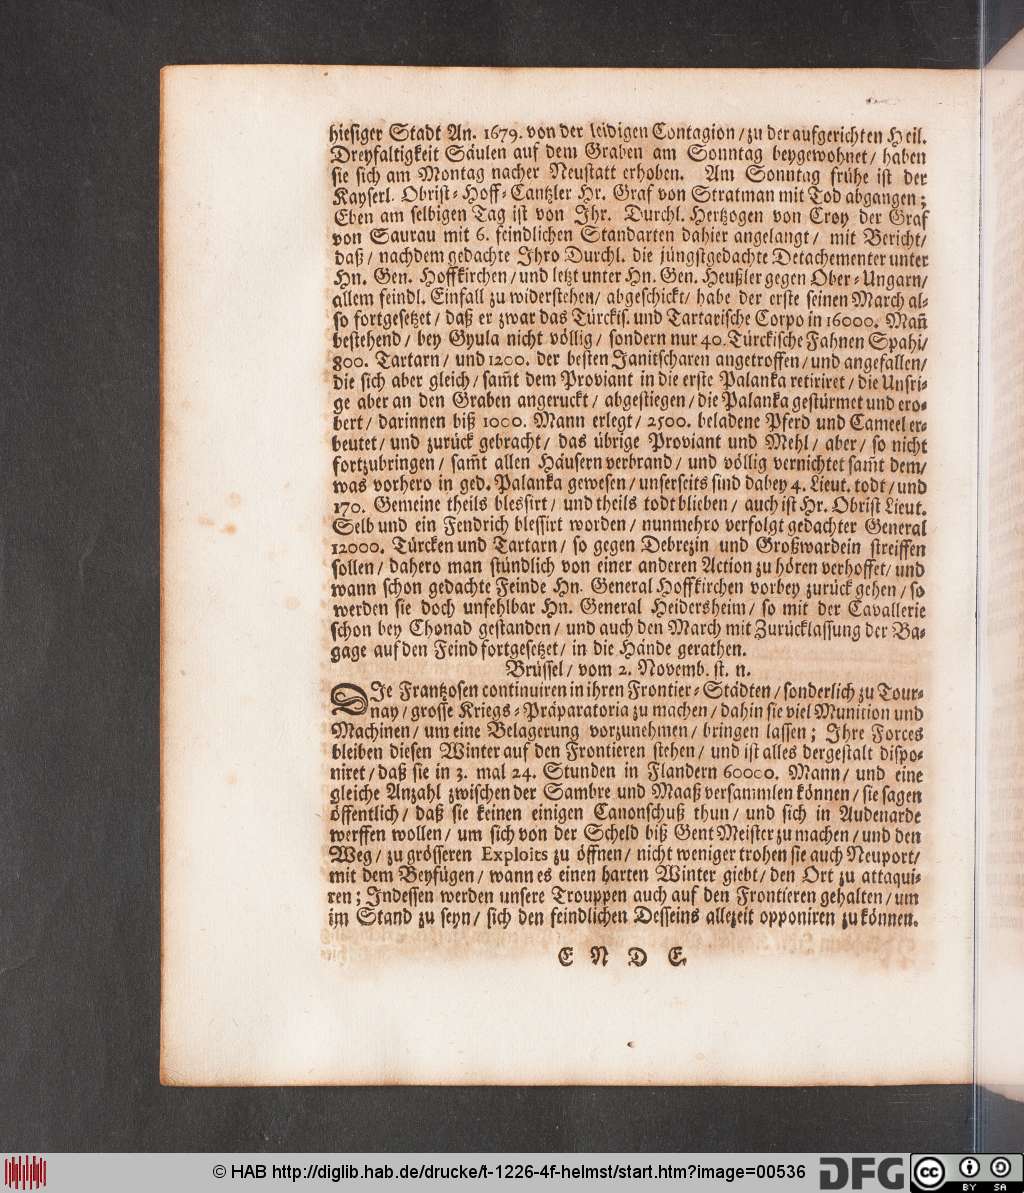 hiesiger Stadt An. 1679. von der leidigen Contagion / zu der aufgerichten Heil.
Dreyfaltigkeit Säulen auf dem Graben am Sonntag beygewohnet / haben
sie sich am Montag nacher Neustatt erhoben. Am Sonntag frühe ist der
Kayserl. Obrist-Hoff-Cantzler Hr. Graf von Stratman mit Tod abgangen;
Eben am selbigen Tag ist von Ihr. Durchl. Hertzogen von Croy der Graf
von Saurau mit 6. feindlichen Standarten dahier angelangt / mit Bericht /
daß / nachdem gedachte Ihro Durchl. die jüngstgedachte Detachementer unter
Hn. Gen. Hoffkirchen / und letzt unter Hn. Gen. Heußler gegen Ober-Ungarn /
allem feindl. Einfall zu widerstehen / abgeschickt / habe der erste seinen March al-
so fortgesetzet / daß er zwar das Türckis. und Tartarische Corpo in 16000. Mañ
bestehend / bey Gyula nicht völlig / sondern nur 40. Türckische Fahnen Spahi /
800. Tartarn / und 1200. der besten Janitscharen angetroffen / und angefallen /
die sich aber gleich / sam̃t dem Proviant in die erste Palanka retiriret / die Unsri-
ge aber an den Graben angeruckt / abgestiegen / die Palanka gestürmet und ero-
bert / darinnen biß 1000. Mann erlegt / 2500. beladene Pferd und Cameel er-
beutet / und zurück gebracht / das übrige Proviant und Mehl / aber / so nicht
fortzubringen / sam̃t allen Häusern verbrand / und völlig vernichtet sam̃t dem /
was vorhero in ged. Palanka gewesen / unserseits sind dabey 4. Lieut. todt / und
170. Gemeine theils blessirt / und theils todt blieben / auch ist Hr. Obrist Lieut.
Selb und ein Fendrich blessirt worden / nunmehro verfolgt gedachter General
12000. Türcken und Tartarn / so gegen Debrezin und Großwardein streiffen
sollen / dahero man stündlich von einer anderen Action zu hören verhoffet / und
wann schon gedachte Feinde Hn. General Hoffkirchen vorbey zurück gehen / so
werden sie doch unfehlbar Hn. General Heidersheim / so mit der Cavallerie
schon bey Chonad gestanden / und auch den March mit Zurücklassung der Ba-
gage auf den Feind fortgesetzet / in die Hände gerathen.
Brüssel / vom 2. Novemb. st. n.
DIe Frantzosen continuiren in ihren Frontier-Städten / sonderlich zu Tour-
nay / grosse Kriegs-Präparatoria zu machen / dahin sie viel Munition und
Machinen / um eine Belagerung vorzunehmen / bringen lassen; Ihre Forces
bleiben diesen Winter auf den Frontieren stehen / und ist alles dergestalt dispo-
niret / daß sie in 3. mal 24. Stunden in Flandern 60000. Mann / und eine
gleiche Anzahl zwischen der Sambre und Maaß versammlen können / sie sagen
öffentlich / daß sie keinen einigen Canonschuß thun / und sich in Audenarde
werffen wollen / um sich von der Scheld biß Gent Meister zu machen / und den
Weg / zu grösseren Exploits zu öffnen / nicht weniger trohen sie auch Neuport /
mit dem Beyfügen / wann es einen harten Winter giebt / den Ort zu attaqui-
ren; Indessen werden unsere Trouppen auch auf den Frontieren gehalten / um
im Stand zu seyn / sich den feindlichen Desseins allezeit opponiren zu können.
E N D E.
© HAB http://diglib.hab.de/drucke/t-1226-4f-helmst/start.htm?image=00536
DFG
cc BY SA